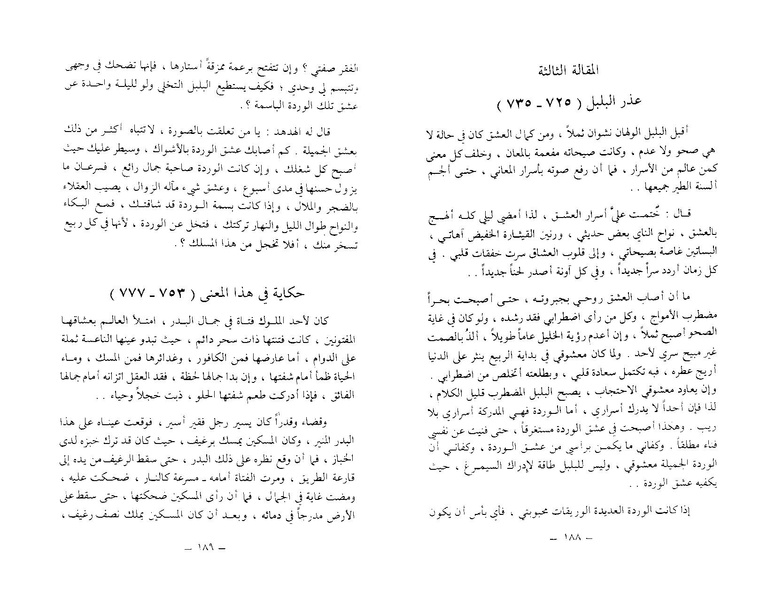 المقالة الثالثة
عذر البلبل ( ٧٢٥ ـ ٧٣٥ )
أقبل البلبل الولهان نشوان ثملاً ، ومن كمال العشق كان في حالة لا
هي صحو ولا عدم ، وكانت صيحاته مفعمة بالمعان ، وخلف كل معنى
كمن عالم من الأسرار ، فما أن رفع صوته بأسرار المعاني ، حتـى ألجـم
ألسنة الطير جميعها ..
قـال : خُتمست علىَّ أسرار العشـق ، لذا أمضي ليلى كلـه ألهـج
بالعشق ، نواح الناي بعض حديثي ، ورنين القيثـارة الخفيض آهاتـي ،
البساتين غاصة بصيحاتي ، وإلى قلوب العشاق سرت خفقات قلبي . في
كل زمان أردد سراً جديداً ، وفي كل آونة أصدر لحناً جديداً ..
ما أن أصاب العشق روحـي بجبروتـه ، حتـى أصبحـت بحـراً
مضطرب الأمواج ، وكل من رأى اضطرابي فقد رشده ، ولو كان في غاية
الصحو أصبح ثملاً ، وإن أعدم رؤية الخليل عاماً طويلاً ، ألذُ بالصمت
غير مبيح سري لأحد . ولما كان معشوقي في بداية الربيع ينثر على الدنيا
أريج عطره ، فبه تكتمل سعادة قلبي ، وبطلعته أتخلص من اضطرابي .
وإن يعاود معشوقي الاحتجاب ، يصبح البلبل المضطرب قليل الكلام ،
لذا فإن أحداً لا يدرك أسراري ، أما الـوردة فهـي المدركة أسراري بلا
ريب . وهكذا أصبحت في عشق الوردة مستغرقاً ، حتى فنيت عن نفسي
فناء مطلقاً . وكفاني ما يكمـن برأسي من عشـق الـوردة ، وكفانـي أن
الوردة الجميلة معشوقي ، وليس للبلبل طاقة لإدراك السيمـرغ ، حيث
يكفيه عشق الوردة ..
إذا كانت الوردة العديدة الوريقات محبوبتي ، فأي بأس أن يكون
ـ ١٨٨ ـ
الفقر صفتي ؟ وإن تتفتح برعمة ممزقةً أستارها ، فإنها تضحك في وجهى
وتتبسم لي وحدي ؛ فكيف يستطيع البلبل التخلى ولو لليلـة واحدة عن
عشق تلك الوردة الباسمة ؟ .
قال له الهدهد : يا من تعلقت بالصورة ، لا تتباه أكثـر من ذلك
بعشق الجميلة . كم أصابك عشق الوردة بالأشواك ، وسيطر عليك حيث
أصبح كل شغلك ، وإن كانت الوردة صاحبة جمال رائع ، فسرعـان ما
يزول حسنها في مدى أسبوع ، وعشق شيء مآله الزوال ، يصيب العقلاء
بالضجر والملال ، وإذا كانت بسمة الوردة قد شاقتـك ، فمع البكـاء
والنواح طوال الليل والنهار تركتك ، فتخل عن الوردة ، لأنها في كل ربيع
تسخر منك ، أفلا تخجل من هذا المسلك ؟ .
حكاية في هذا المعنى ( ٧٥٣ ـ ٧٧٧ )
كان لأحد الملـوك فتـاة في جمـال البـدر ، امتـلأ العالـم بعشاقهـا
المفتونين ، كانت فتنتها ذات سحر دائم ، حيث تبدو عينها الناعسة ثملة
على الدوام ، أما عارضها فمن الكافور ، وغدائرها فمن المسك ، ومـاء
الحياة ظمأ أمام شفتها ، وإن بدا جمالها لحظة ، فقد العقل اتزانه أمام جمالها
الفائق ، فإذا أدركت طعم شفتها الحلو ، ذبت خجلاً وحياء ..
وقضاء وقدراً كان يسير رجل فقير أسير ، فوقعت عينـاه على هذا
البدر المنير ، وكان المسكين يمسك برغيف ، حيث كان قد ترك خبزه لدى
الخباز ، فما أن وقع نظره على ذلك البدر ، حتى سقط الرغيف من يده إلى
قارعة الطريق ، ومرت الفتاة أمامه ـ مسرعة كالنـار ، ضحـكت عليه ،
ومضت غاية في الجمال ، فما أن رأى المسكين ضحكتها ، حتى سقط على
الأرض مدرجاً في دمائه ، وبعـد أن كان المسكين يملك نصف رغيف ،
ـ ١٨٩ ـ